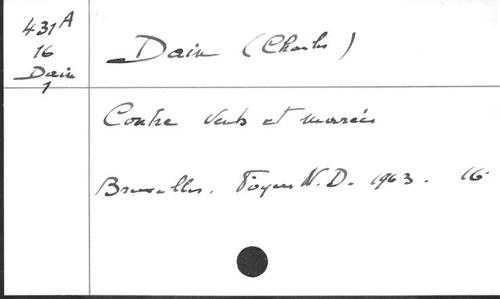 431A
16
Dain
1
Dain (Charles)
Contre vents et marées
Bruxelles. Foyer N.D. 1963. 16